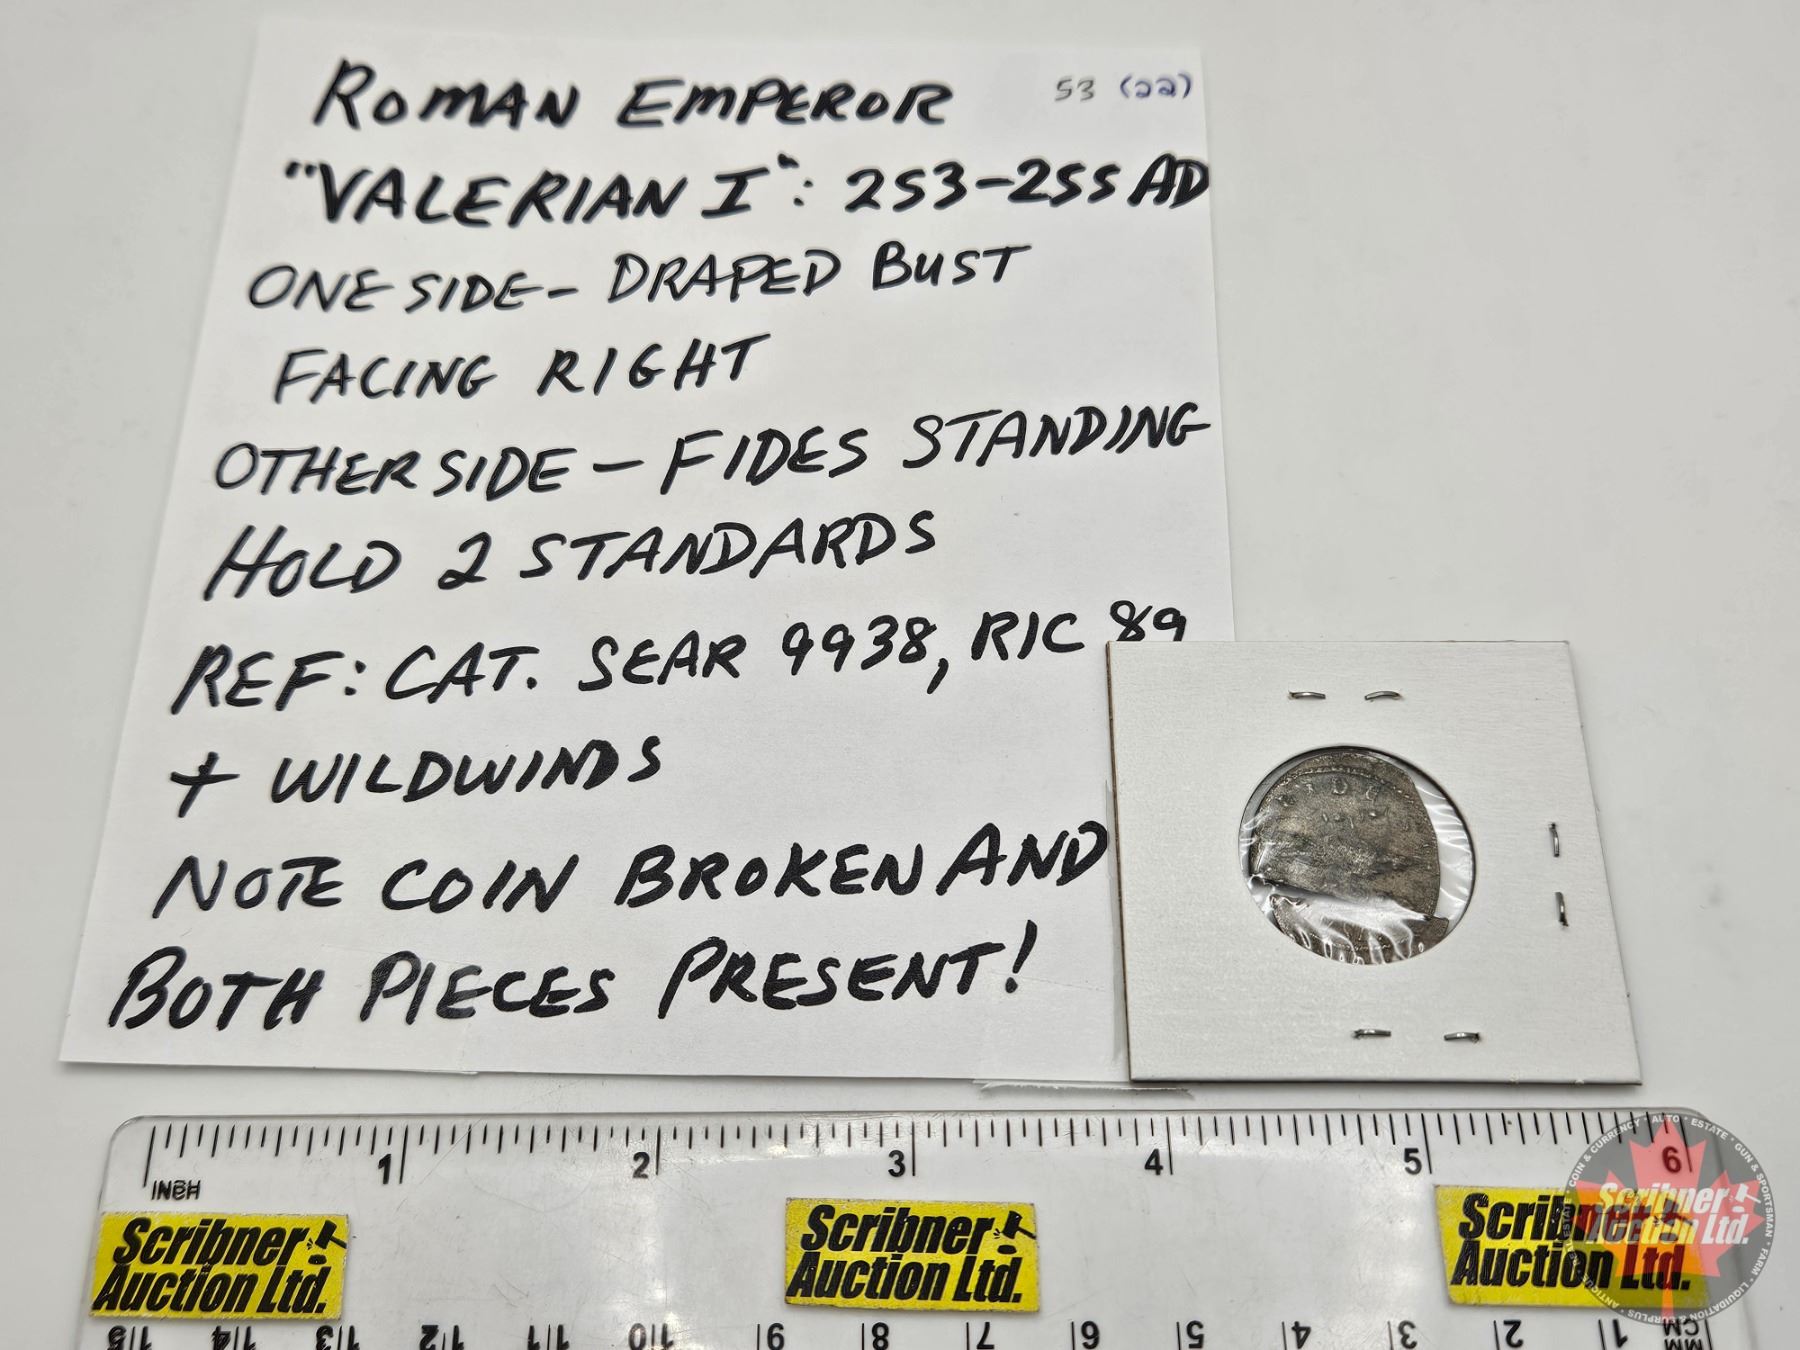 53 (22)
ROMAN EMPEROR
"VALERIAN I": 253-255 AD
ONE SIDE - DRAPED BUST
FACING RIGHT
OTHER SIDE - FIDES STANDING
HOLD 2 STANDARDS
REF: CAT. SEAR 9938, RIC 89
+ WILDWINDS
NOTE COIN BROKEN AND
BOTH PIECES PRESENT!
1 2 3 4 5 6
INCH
Scribner
Auction Ltd.
Scribner
Auction Ltd.
Scribner
Auction Ltd.
Scribner
Auction Ltd.
COIN & CURRENCY * AUTO * ESTATE * GUN & SPORTSMAN * FARM * LIQUIDATION & SURPLUS *
15 14 13 12 11 10 9 8 7 6 5 4 3 2 1 CM
MM